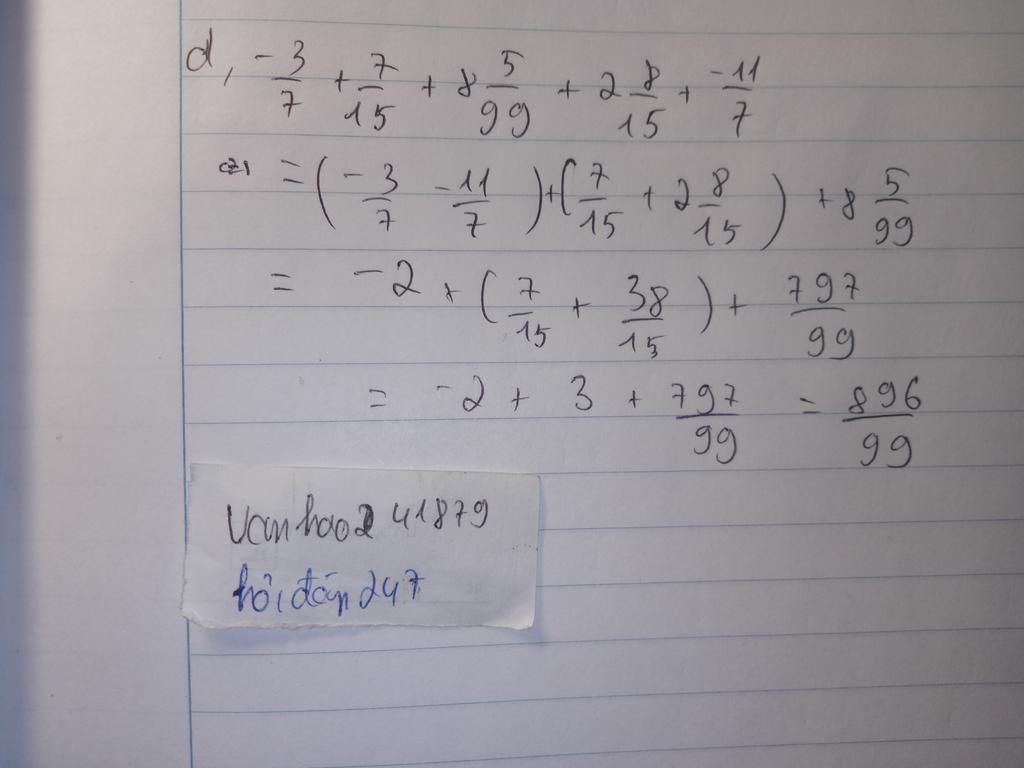 d, -3/7 + 7/15 + 8 5/99 + 2 8/15 + -11/7
= (-3/7 -11/7) + (7/15 + 2 8/15) + 8 5/99
= -2 + (7/15 + 38/15) + 797/99
= -2 + 3 + 797/99 = 896/99
Vanhao2 41879
hỏi đáp 247